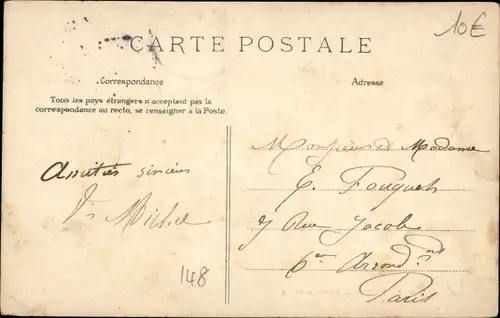 10€
CARTE POSTALE
Correspondance
Adresse
Tous les pays étrangers n'acceptent pas la
correspondance au recto, se renseigner à la Poste.
Monsieur et Madame
Amitiés sincères
E. Fouquet
Michel
7 Rue Jacob
6e Arrondt
Paris
148